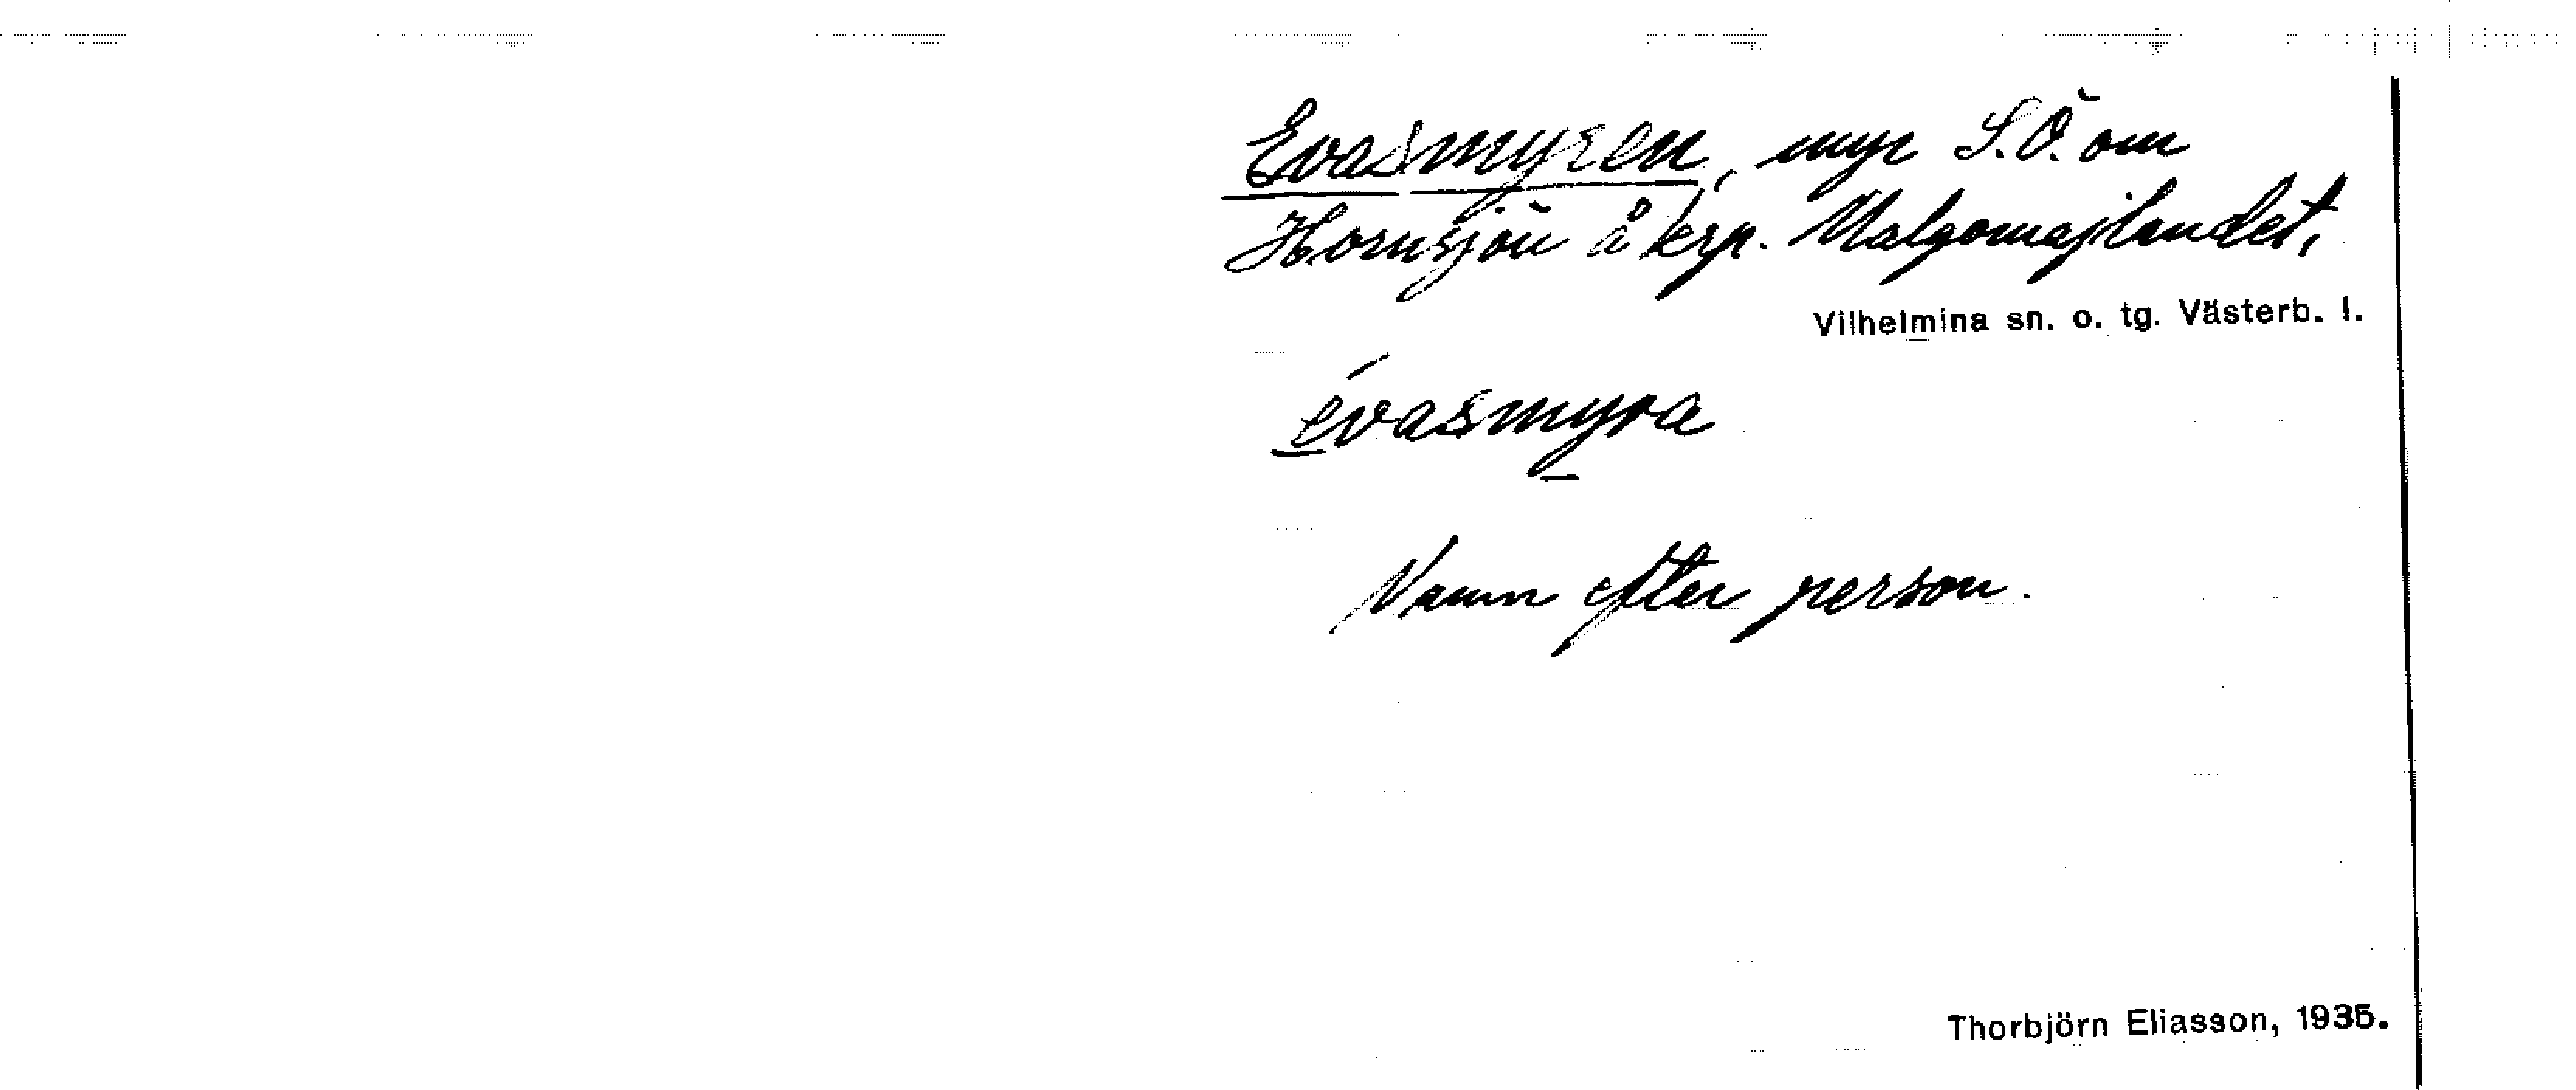 Evasmyren, myr S.Ö. om
Hornsjön å krp. Malgomajlandet,
Vilhelmina sn. o. tg. Västerb. l.
évasmyra
Namn efter person.
Thorbjörn Eliasson, 1935.